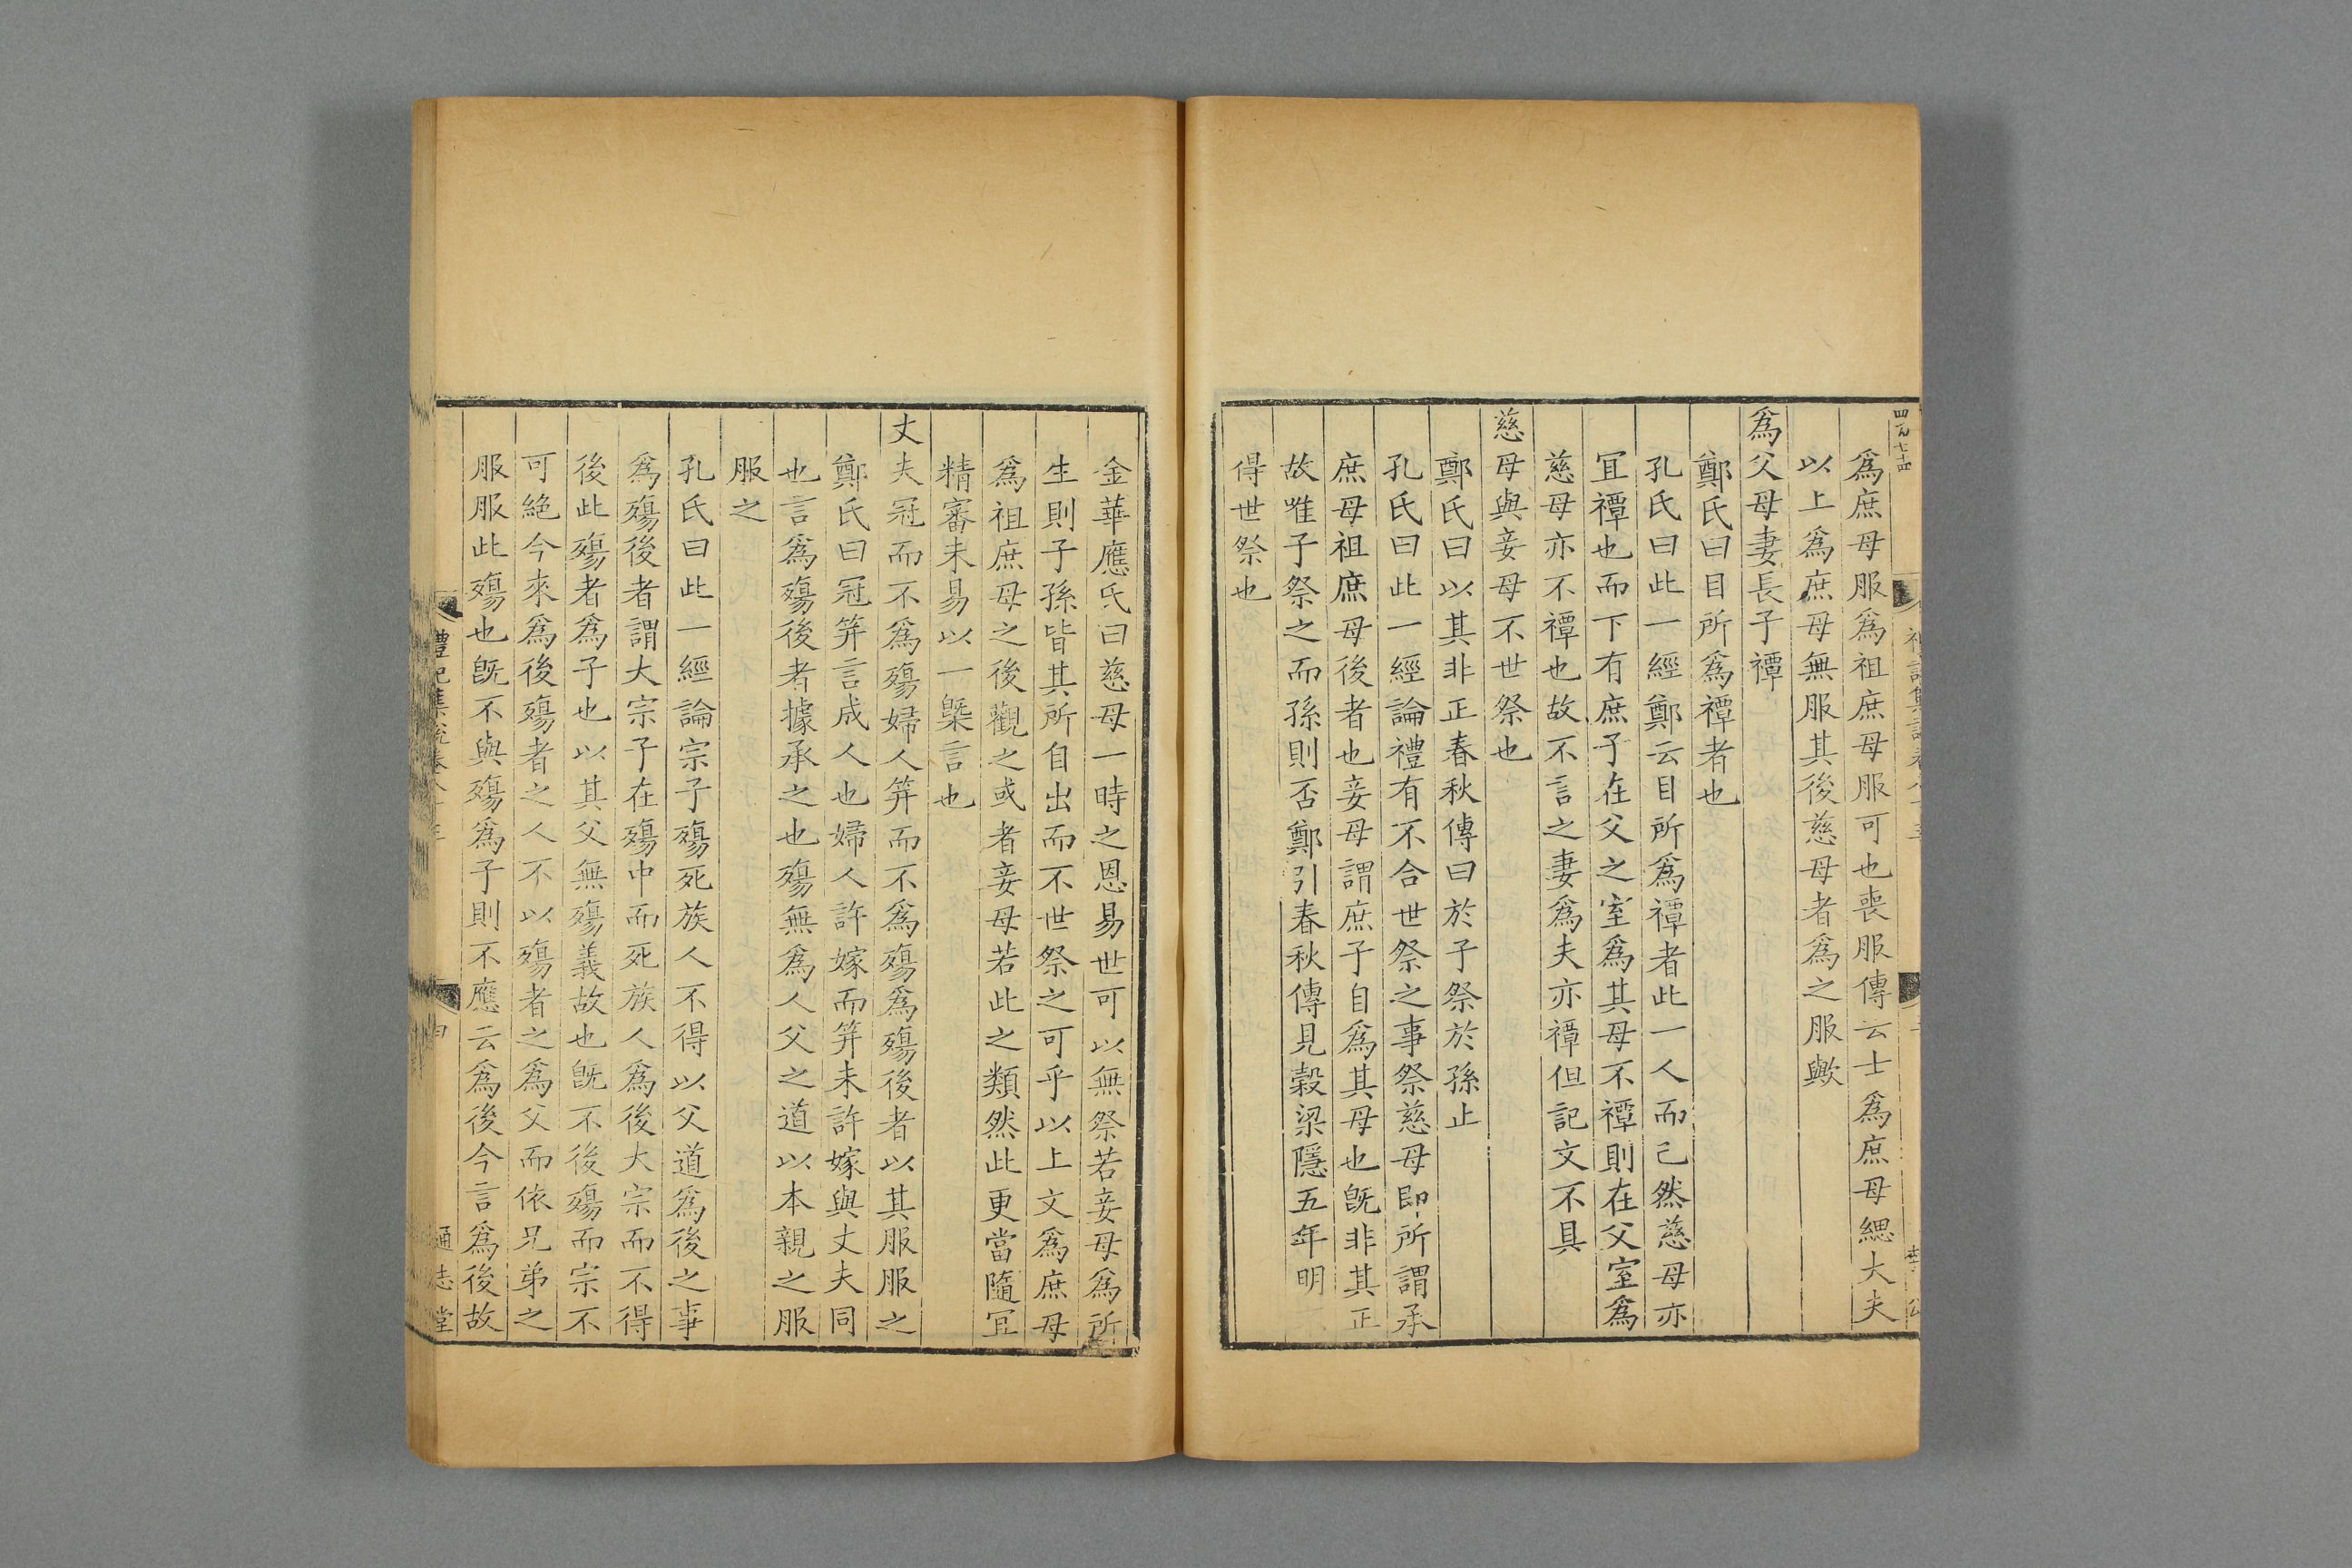 四百七十四
爲庶母服爲祖庶母服可也喪服傳云士爲庶母緦大夫
以上爲庶母無服其後慈母者爲之服歟
爲父母妻長子禫
鄭氏曰目所爲禫者也
孔氏曰此一經鄭云目所爲禫者此一人而已然慈母亦
宜禫也而下有庶子在父之室爲其母不禫則在父室爲
慈母亦不禫也故不言之妻爲夫亦禫但記文不具
慈母與妾母不世祭也
鄭氏曰以其非正春秋傳曰於子祭於孫止
孔氏曰此一經論禮有不合世祭之事祭慈母即所謂承
庶母祖庶母後者也妾母謂庶子自爲其母也旣非其正
故唯子祭之而孫則否鄭引春秋傳見穀梁隱五年明
得世祭也
金華應氏曰慈母一時之恩易世可以無祭若妾母爲所
生則子孫皆其所自出而不世祭之可乎以上文爲庶母
爲祖庶母之後觀之或者妾母若此之類然此更當隨宜
精審未易以一槩言也
丈夫冠而不爲殤婦人筓而不爲殤爲殤後者以其服服之
鄭氏曰冠筓言成人也婦人許嫁而筓未許嫁與丈夫同
也言爲殤後者據承之也殤無爲人父之道以本親之服
服之
孔氏曰此一經論宗子殤死族人不得以父道爲後之事
爲殤後者謂大宗子在殤中而死族人爲後大宗而不得
後此殤者爲子也以其父無殤義故也旣不後殤而宗不
可絶今來爲後殤者之人不以殤者之爲父而依兄弟之
服服此殤也旣不與殤爲子則不應云爲後今言爲後故
禮記集說卷八十三
通志堂